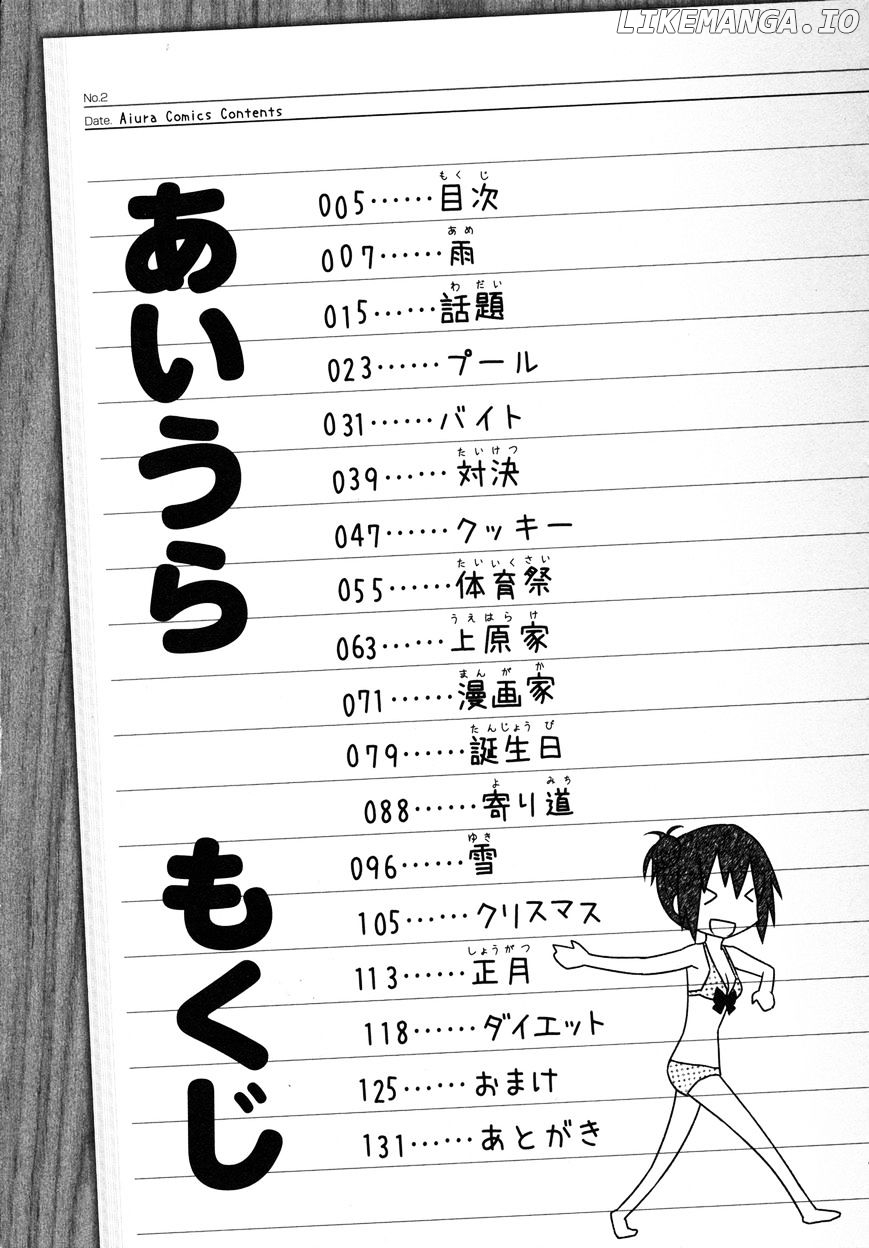 LIKEMANGA.IO
No.2
Date. Aiura Comics Contents
あいうら
もくじ
005……目次
もくじ
007……雨
あめ
015……話題
わだい
023……プール
031……バイト
039……対決
たいけつ
047……クッキー
055……体育祭
たいいくさい
063……上原家
うえはらけ
071……漫画家
まんがか
079……誕生日
たんじょうび
088……寄り道
よ みち
096……雪
ゆき
105……クリスマス
113……正月
しょうがつ
118……ダイエット
125……おまけ
131……あとがき